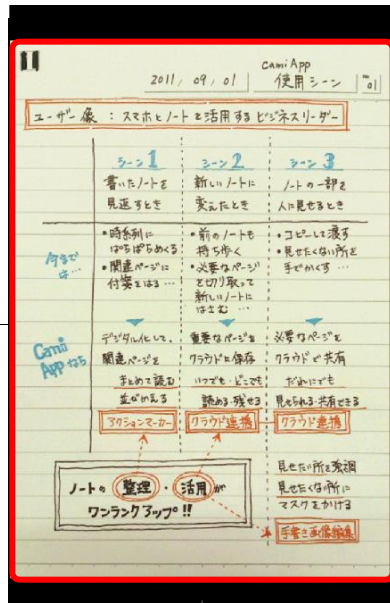 1
2011, 09, 01
Cami App
使用シーン
No 01
ユーザー像:スマホとノートを活用するビジネスリーダー
シーン1
書いたノートを
見返すとき
シーン2
新しいノートに
変えたとき
シーン3
ノートの一部を
人に見せるとき
今までは…
・時系列に
ぱらぱらめくる
・関連ページに
付箋をはる…
・前のノートも
持ち歩く
・必要なページ
を切り取って
新しいノートに
はさむ…
・コピーして渡す
・見せたくない所を
手でかくす…
Cami
Appなら
デジタル化して、
関連ページを
まとめて読む
並びかえる
アクションマーカー
重要なページを
クラウドに保存
いつでも・どこでも
読める・残せる
クラウド連携
必要なページを
クラウドで共有
だれにでも
見せられる・共有できる
クラウド連携
見せたい所を強調
見せたくない所に
マスクをかける
手書き画像編集
ノートの整理・活用が
ワンランクアップ!!